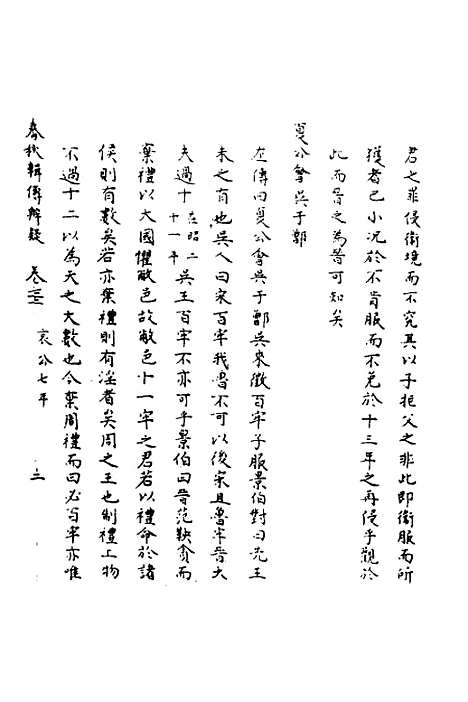 君之罪侵衛境而不究其以子拒父之非此即衛服而所
獲者已小况於不肯服而不免於十三年之再侵乎觀於
此而晉之為晉可知矣
夏公會吳于鄫
左傳曰夏公會吳于鄫吳來徵百牢子服景伯對曰先王
未之有也吳人曰宋百牢我魯不可以後宋且魯牢晉大
夫過十在昭二十一年吳王百牢不亦可乎景伯曰晉范鞅貪而
棄禮以大國懼敝邑故敝邑十一牢之君若以禮命於諸
侯則有數矣若亦棄禮則有淫者矣周之王也制禮上物
不過十二以為天之大數也今棄周禮而曰必百牢亦唯
春秋輯傳辨疑 卷 哀公七年 三